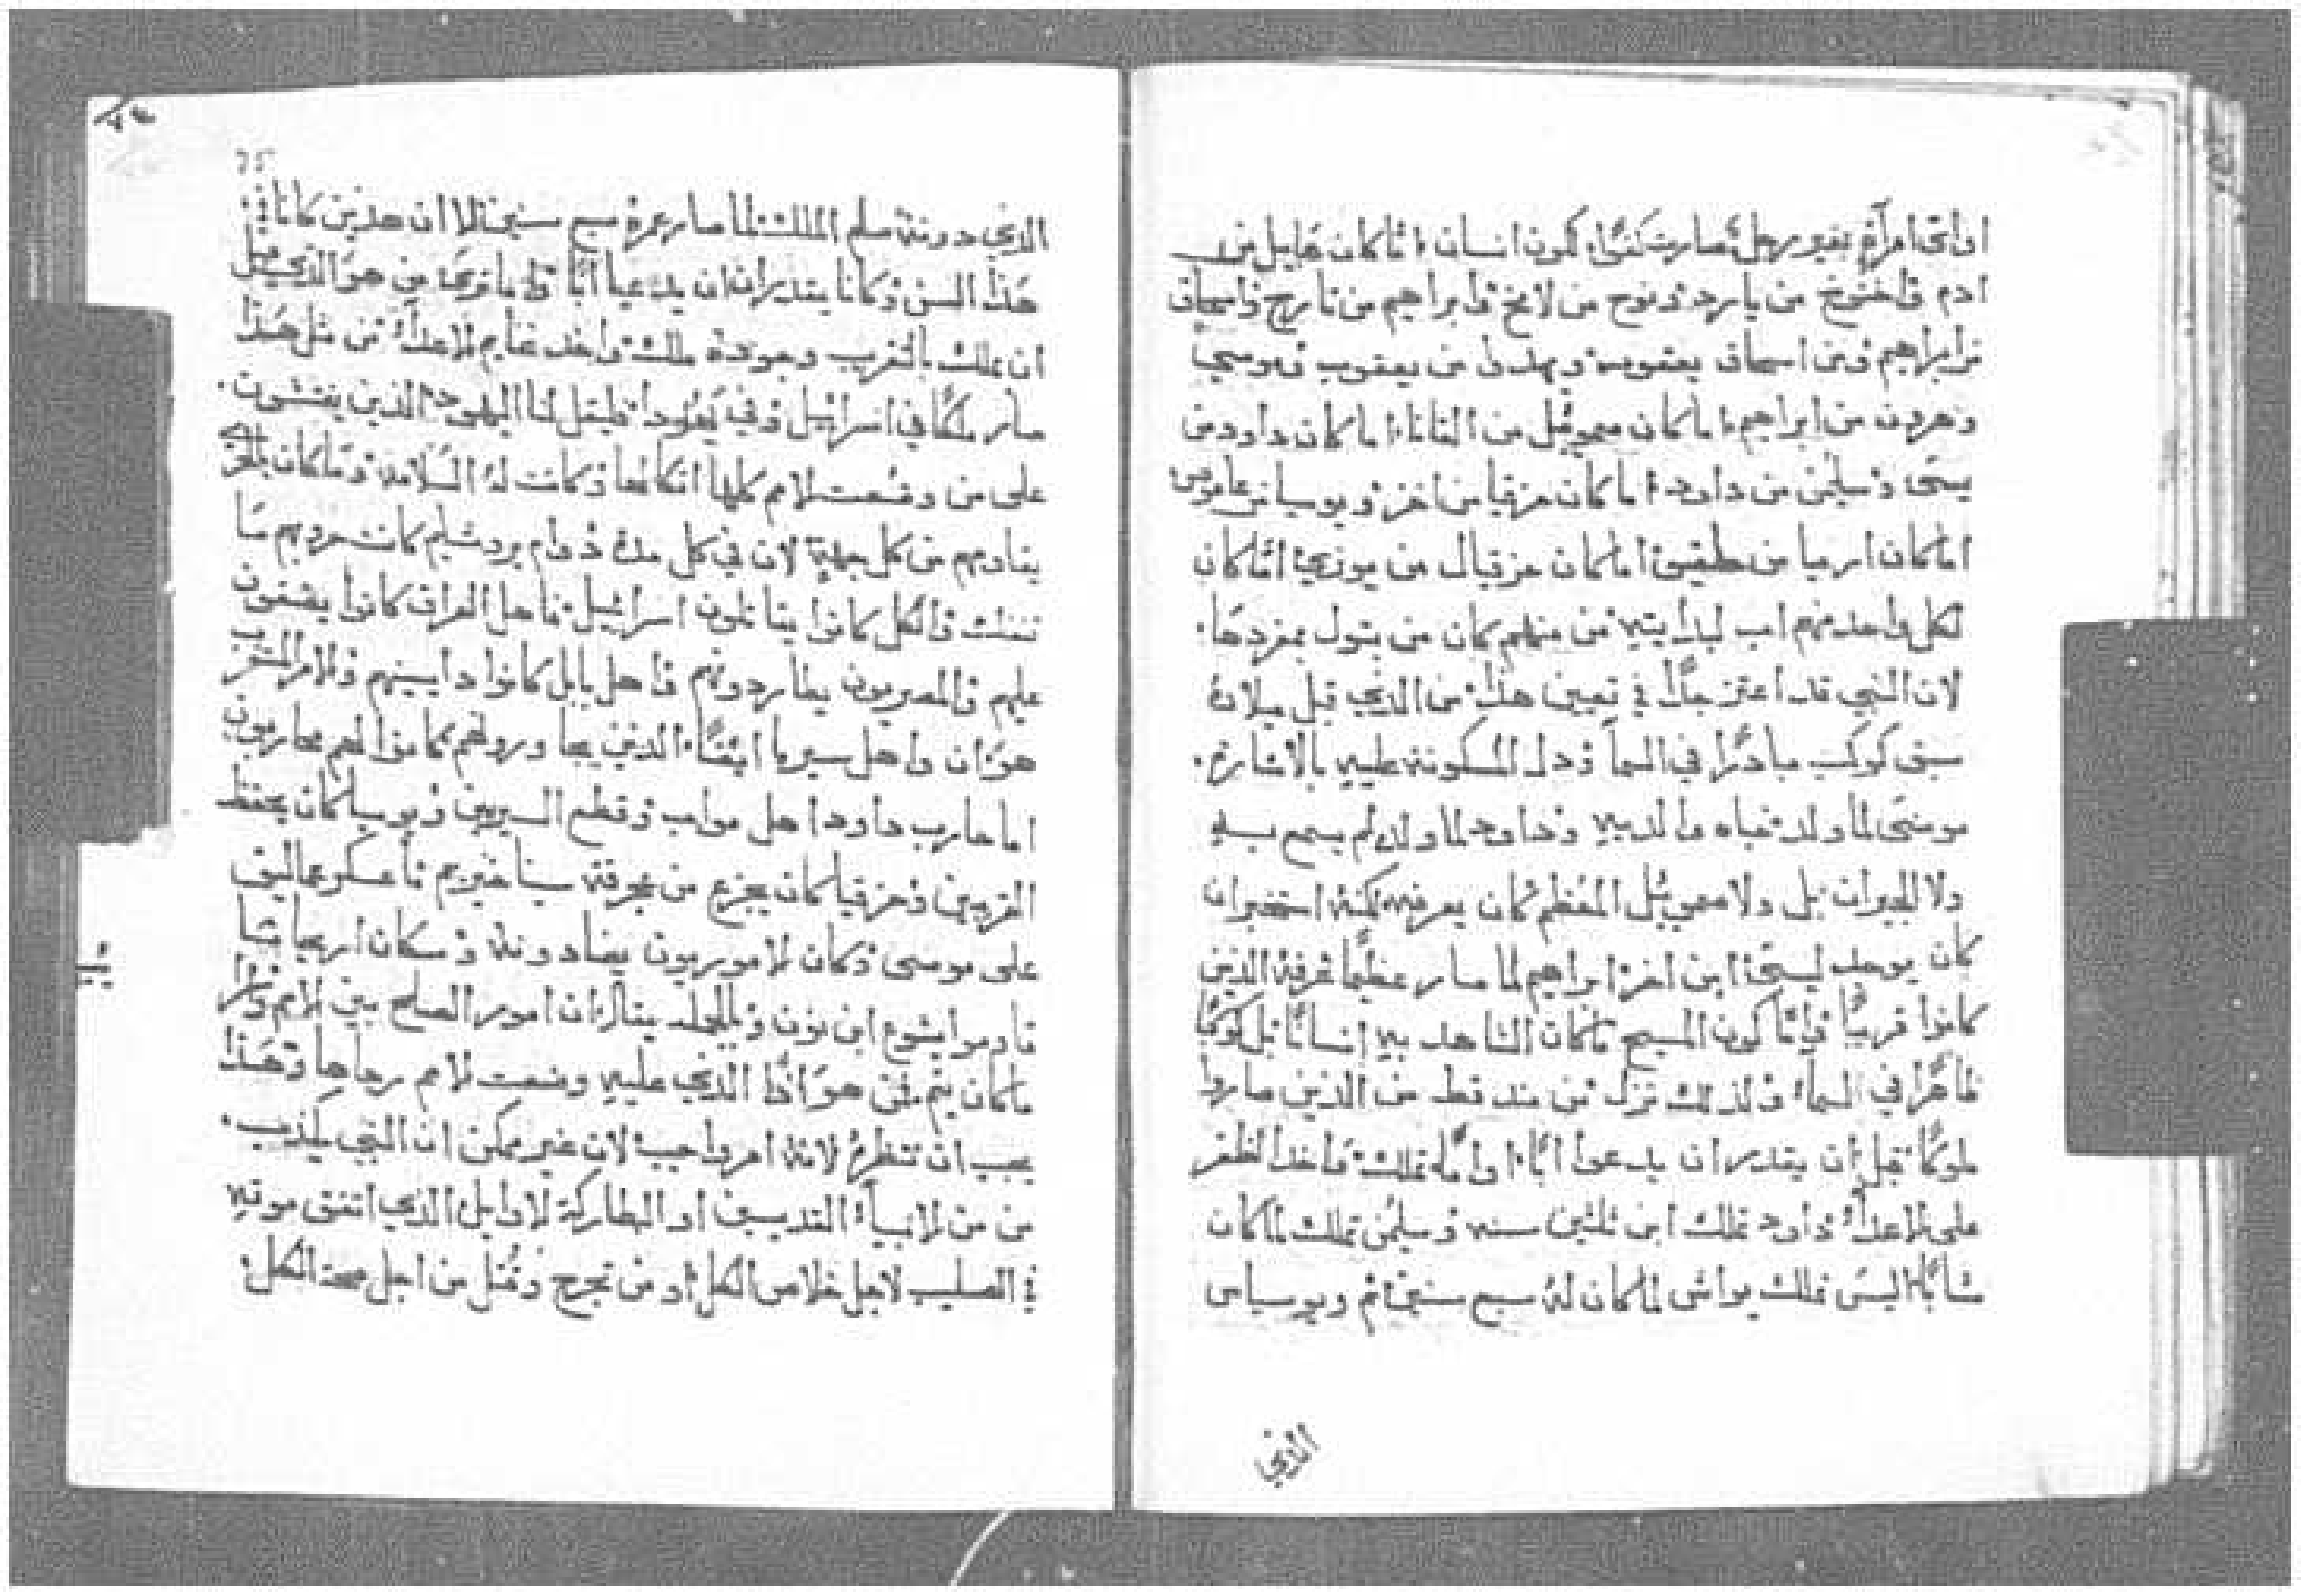 او اتى امراة بغير رجل صارت كنتى كون انسان اما كان هابيل من
ادم واخنوخ من يارد ونوح من لامخ وابراهيم من تارح واسحاق
من ابراهيم ومن اسحاق يعقوب ويهودا من يعقوب وموسى
وهرون من ابراهيم اما كان صموئيل من القانا اما كان داود من
يسى وسليمن من داود اما كان حزقيا من احز ويوسيا من عاموص
اما كان ارميا من حلقيا اما كان حزقيال من بوزي اما كان
لكل واحد منهم اب لبدايته من منهم كان من بتول بمفردها
لان النبي قد اعتز جدا في تعيين هذا من الذي قبل ميلاده
سبق كوكب بادرا في السما ودل المسكونة عليه بالاشارة
موسى لما ولد خباه والديه وداود لما ولد لم يسمع به
ولا الجيران بل ولا صموئيل المعظم كان يعرفه لكنه استخبر ان
كان يوجد ليسى ابن اخر ابراهيم لما صار عظيما عرفه الذين
كانوا قريبا واما كون المسيح ما كان الشاهد به انسانا بل كوكبا
ظاهرا في السما ولذلك نزل من منذ قط من الذين صاروا
ملوكا قبل ان يقدر ان يدعوا ابا او اما تملك واخذ الظفر
على الاعداء داود تملك ابن ثلثين سنه وسليمن تملك لما كان
شابا اليس تملك يواش لما كان له سبع سنين ثم ويوسياس
الذي
الذي دونه سلم الملك لما صار عمره سبع سنين الا ان هذين كانا في
هذا السن وكانا يقدران ان يدعيا ابا واما فمن هو الذي قبل
ان ملك بالقرب وجودة ملك واخذ غنايم الاعداء من مثل هذا
صار ملكا في اسرائيل وفي يهودا فليقل لنا اليهود الذين يفتشون
على من وضعت الامم كلها اتكالها وكانت له السلامة وما كان بالحري
يناديهم من كل جهة لان في كل مدة دوام يروشليم كانت حروبهم ما
تنفك والكل كانوا يقاتلون اسرائيل فاهل العراق كانوا يشقون
عليهم والمصريون يطاردونهم واهل بابل كانوا دايسينهم والامر المستغرب
هو ان واهل سيريا ايضا الذين يجاورونهم كانوا لهم محاربون
اما حارب داود اهل مواب وقطع السريين ويوسيا كان يحتفظ
القريبين وحزقيا كان يجزع من عجرفة سيناخيريم واعسكر عماليق
على موسى وكان الاموريون يضادونه وسكان اريحا
قاوموا يشوع ابن نون وبالجملة يقال ان امور الصلح بين الامم وال
ما كان يتم فمن هو اذا الذي عليه وضعت الامم رجاها وهذا
يجب ان ننظره لانه امر واجب لان غير ممكن ان النبي يكذب
من من الانبياء القديسين او البطاركة الاوايل الذي اتفق موته
في الصليب لاجل خلاص الكل او من تجرح وقتل من اجل صحة الكل